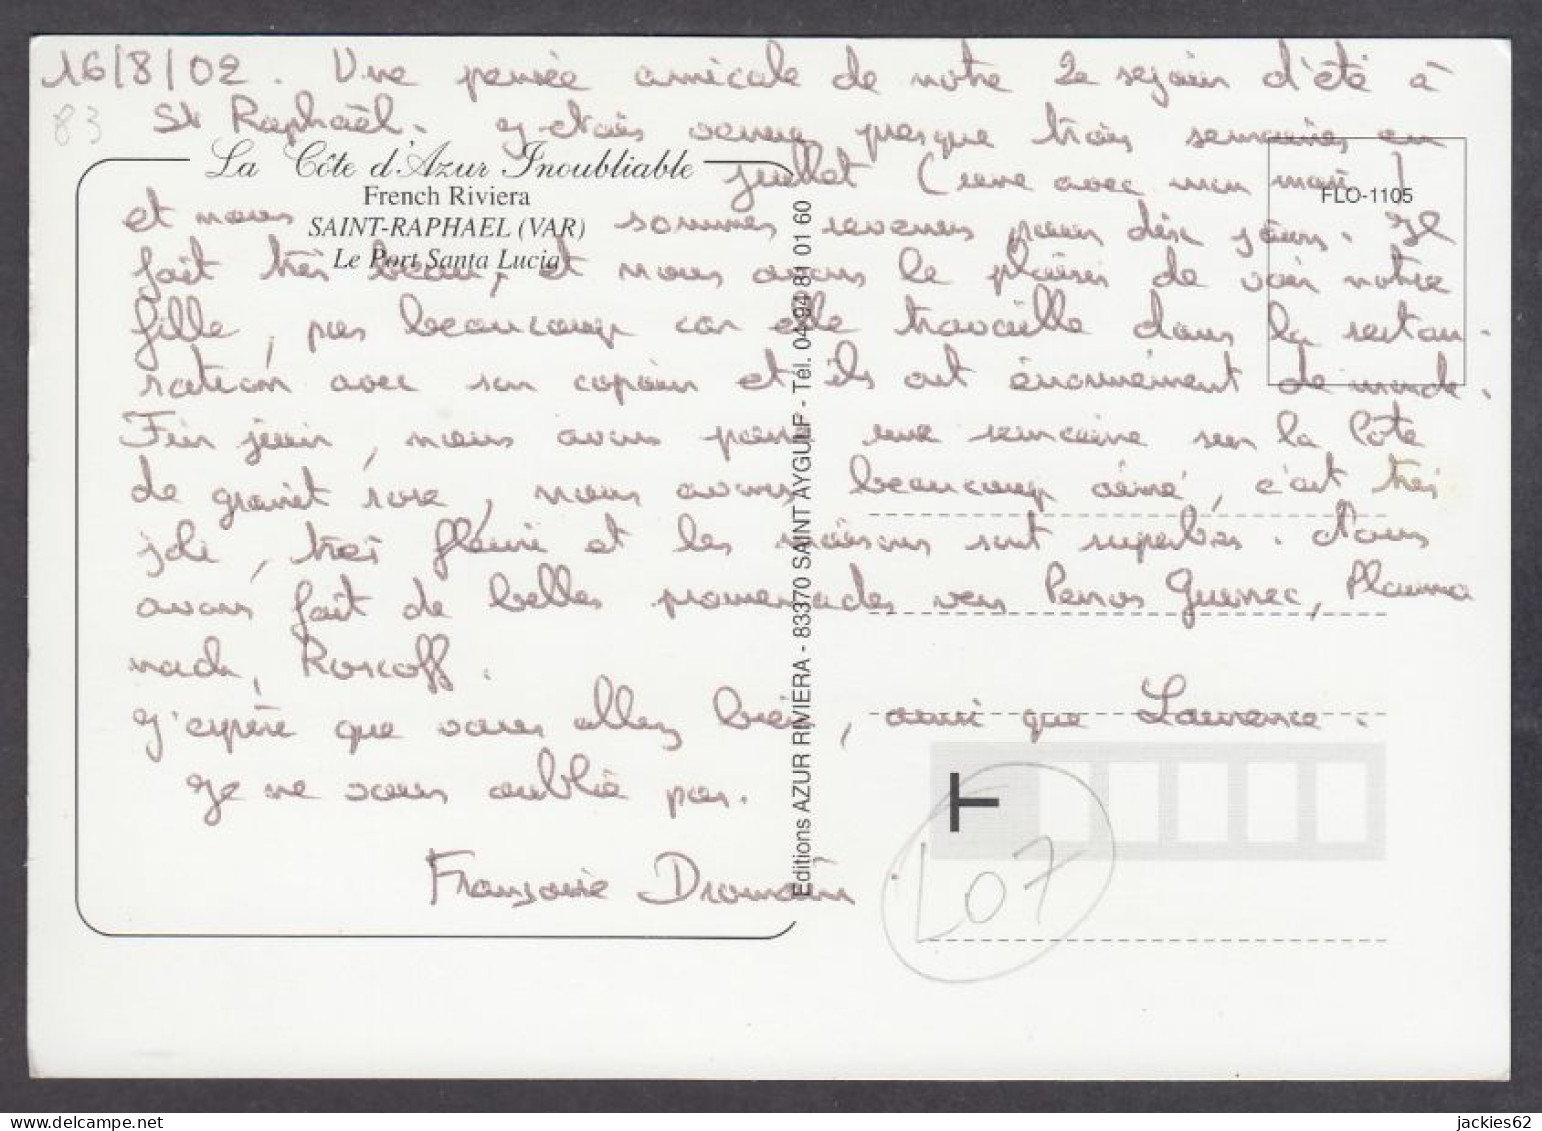 16/8/02. Une pensée amicale de notre 2e sejour d'été à
83
St Raphaël. J'étais venue presque trois semaines en
La Côte d'Azur Inoubliable
juillet (une avec mon mari)
French Riviera
FLO-1105
et nous sommes revenus pour dix jours. Il
SAINT-RAPHAEL (VAR)
Le Port Santa Lucia
fait très beau, et nous avons le plaisir de voir notre
fille, pas beaucoup car elle travaille dans la restau-
ration avec son copain et ils ont énormément de monde.
Fin juin, nous avons passé une semaine sur la Côte
de granit rose, nous avons beaucoup aimé, c'est très
joli, très fleuri et les maisons sont superbes. Nous
avons fait de belles promenades vers Perros Guirrec, Plouma
nach, Roscoff.
J'espère que vous allez bien, ainsi que Laurence.
Je ne vous oublie pas.
Françoise
Editions AZUR RIVIERA - 83370 SAINT AYGULF - Tél. 04 94 81 01 60
T
L07
jackies62